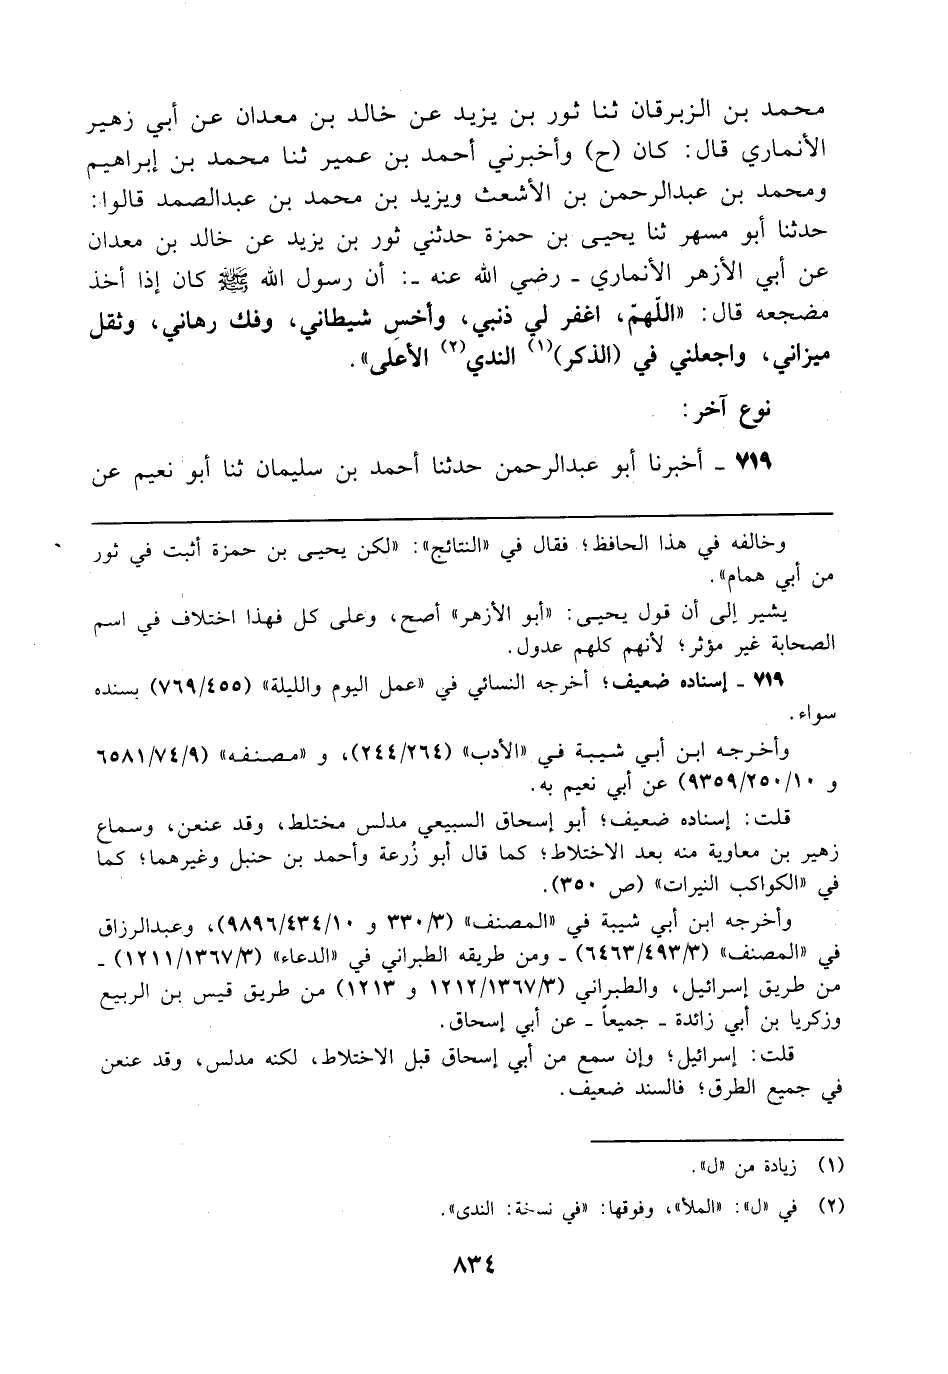 محمد بن الزبرقان ثنا ثور بن يزيد عن خالد بن معدان عن أبي زهير
الأنماري قال: كان (ح) وأخبرني أحمد بن عمير ثنا محمد بن إبراهيم
ومحمد بن عبدالرحمن بن الأشعث ويزيد بن محمد بن عبدالصمد قالوا:
حدثنا أبو مسهر ثنا يحيى بن حمزة حدثني ثور بن يزيد عن خالد بن معدان
عن أبي الأزهر الأنماري ـ رضي الله عنه ـ: أن رسول الله ﷺ كان إذا أخذ
مضجعه قال: «اللّهمّ، اغفر لي ذنبي، وأخسِ شيطاني، وفك رهاني، وثقل
ميزاني، واجعلني في (الذكر)(١) الندي(٢) الأعلى».
نوع آخر:
٧١٩ ـ أخبرنا أبو عبدالرحمن حدثنا أحمد بن سليمان ثنا أبو نعيم عن
وخالفه في هذا الحافظ؛ فقال في «النتائج»: «لكن يحيى بن حمزة أثبت في ثور
من أبي همام».
يشير إلى أن قول يحيى: «أبو الأزهر» أصح، وعلى كل فهذا اختلاف في اسم
الصحابة غير مؤثر؛ لأنهم كلهم عدول.
٧١٩ ـ إسناده ضعيف؛ أخرجه النسائي في «عمل اليوم والليلة» (٧٦٩/٤٥٥) بسنده
سواء.
وأخرجه ابن أبي شيبة في «الأدب» (٢٤٤/٢٦٤)، و «مصنفه» (٦٥٨١/٧٤/٩
و ٩٣٥٩/٢٥٠/١٠) عن أبي نعيم به.
قلت: إسناده ضعيف؛ أبو إسحاق السبيعي مدلس مختلط، وقد عنعن، وسماع
زهير بن معاوية منه بعد الاختلاط؛ كما قال أبو زُرعة وأحمد بن حنبل وغيرهما؛ كما
في «الكواكب النيرات» (ص ٣٥٠).
وأخرجه ابن أبي شيبة في «المصنف» (٣٣٠/٣ و ٩٨٩٦/٤٣٤/١٠)، وعبدالرزاق
في «المصنف» (٦٤٦٣/٤٩٣/٣) ـ ومن طريقه الطبراني في «الدعاء» (١٢١١/١٣٦٧/٣) ـ
من طريق إسرائيل، والطبراني (١٢١٢/١٣٦٧/٣ و ١٢١٣) من طريق قيس بن الربيع
وزكريا بن أبي زائدة ـ جميعاً ـ عن أبي إسحاق.
قلت: إسرائيل؛ وإن سمع من أبي إسحاق قبل الاختلاط، لكنه مدلس، وقد عنعن
في جميع الطرق؛ فالسند ضعيف.
(١) زيادة من «ل».
(٢) في «ل»: «الملأ»، وفوقها: «في نسخة: الندى».
٨٣٤